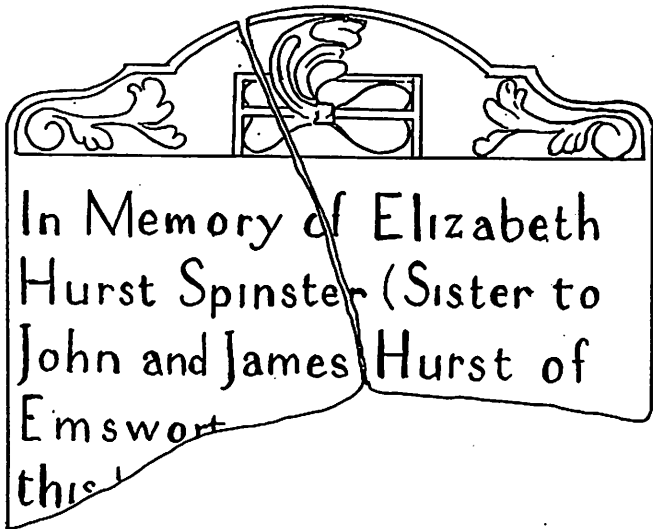 In Memory of Elizabeth
Hurst Spinster (Sister to
John and James Hurst of
Emswort
this